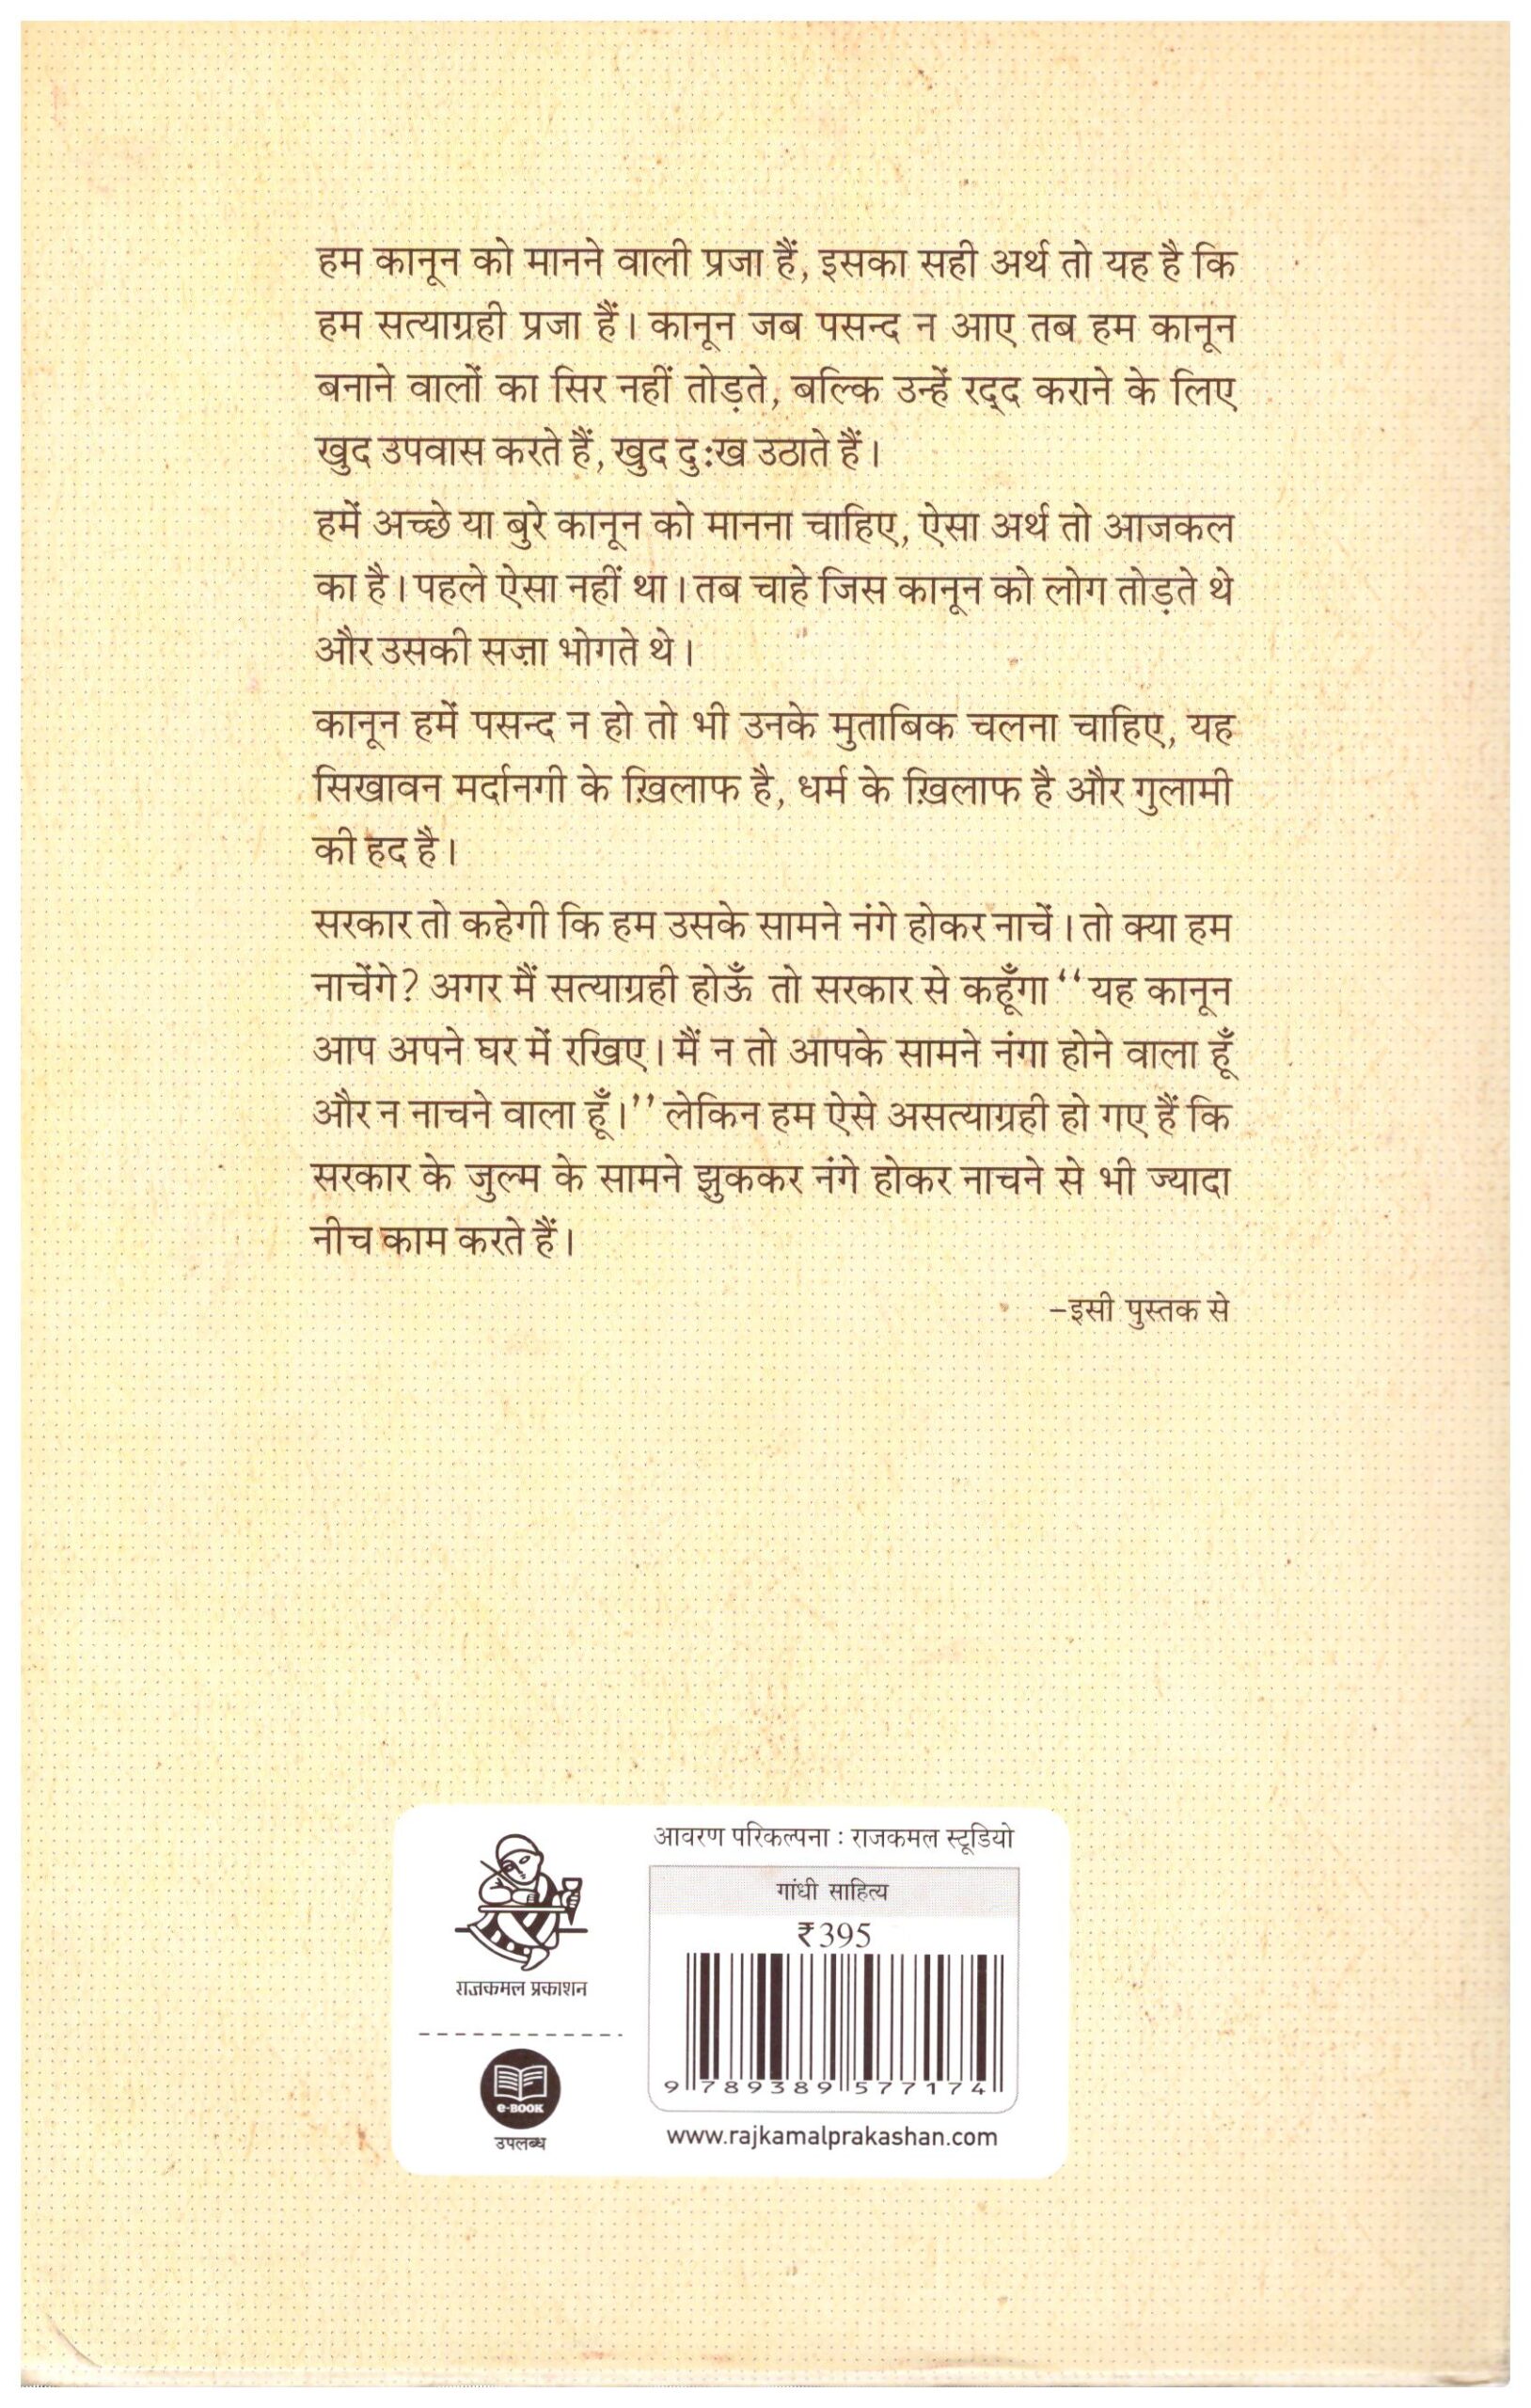 हम कानून को मानने वाली प्रजा हैं, इसका सही अर्थ तो यह है कि
हम सत्याग्रही प्रजा हैं। कानून जब पसन्द न आए तब हम कानून
बनाने वालों का सिर नहीं तोड़ते, बल्कि उन्हें रद्द कराने के लिए
खुद उपवास करते हैं, खुद दुःख उठाते हैं।
हमें अच्छे या बुरे कानून को मानना चाहिए, ऐसा अर्थ तो आजकल
का है। पहले ऐसा नहीं था। तब चाहे जिस कानून को लोग तोड़ते थे
और उसकी सज़ा भोगते थे।
कानून हमें पसन्द न हो तो भी उनके मुताबिक चलना चाहिए, यह
सिखावन मर्दानगी के ख़िलाफ है, धर्म के ख़िलाफ है और गुलामी
की हद है।
सरकार तो कहेगी कि हम उसके सामने नंगे होकर नाचें। तो क्या हम
नाचेंगे? अगर मैं सत्याग्रही होऊँ तो सरकार से कहूँगा “यह कानून
आप अपने घर में रखिए। मैं न तो आपके सामने नंगा होने वाला हूँ
और न नाचने वाला हूँ।” लेकिन हम ऐसे असत्याग्रही हो गए हैं कि
सरकार के जुल्म के सामने झुककर नंगे होकर नाचने से भी ज्यादा
नीच काम करते हैं।
–इसी पुस्तक से
आवरण परिकल्पना : राजकमल स्टूडियो
गांधी साहित्य
₹395
राजकमल प्रकाशन
9 789389 577174
e-BOOK
उपलब्ध
www.rajkamalprakashan.com